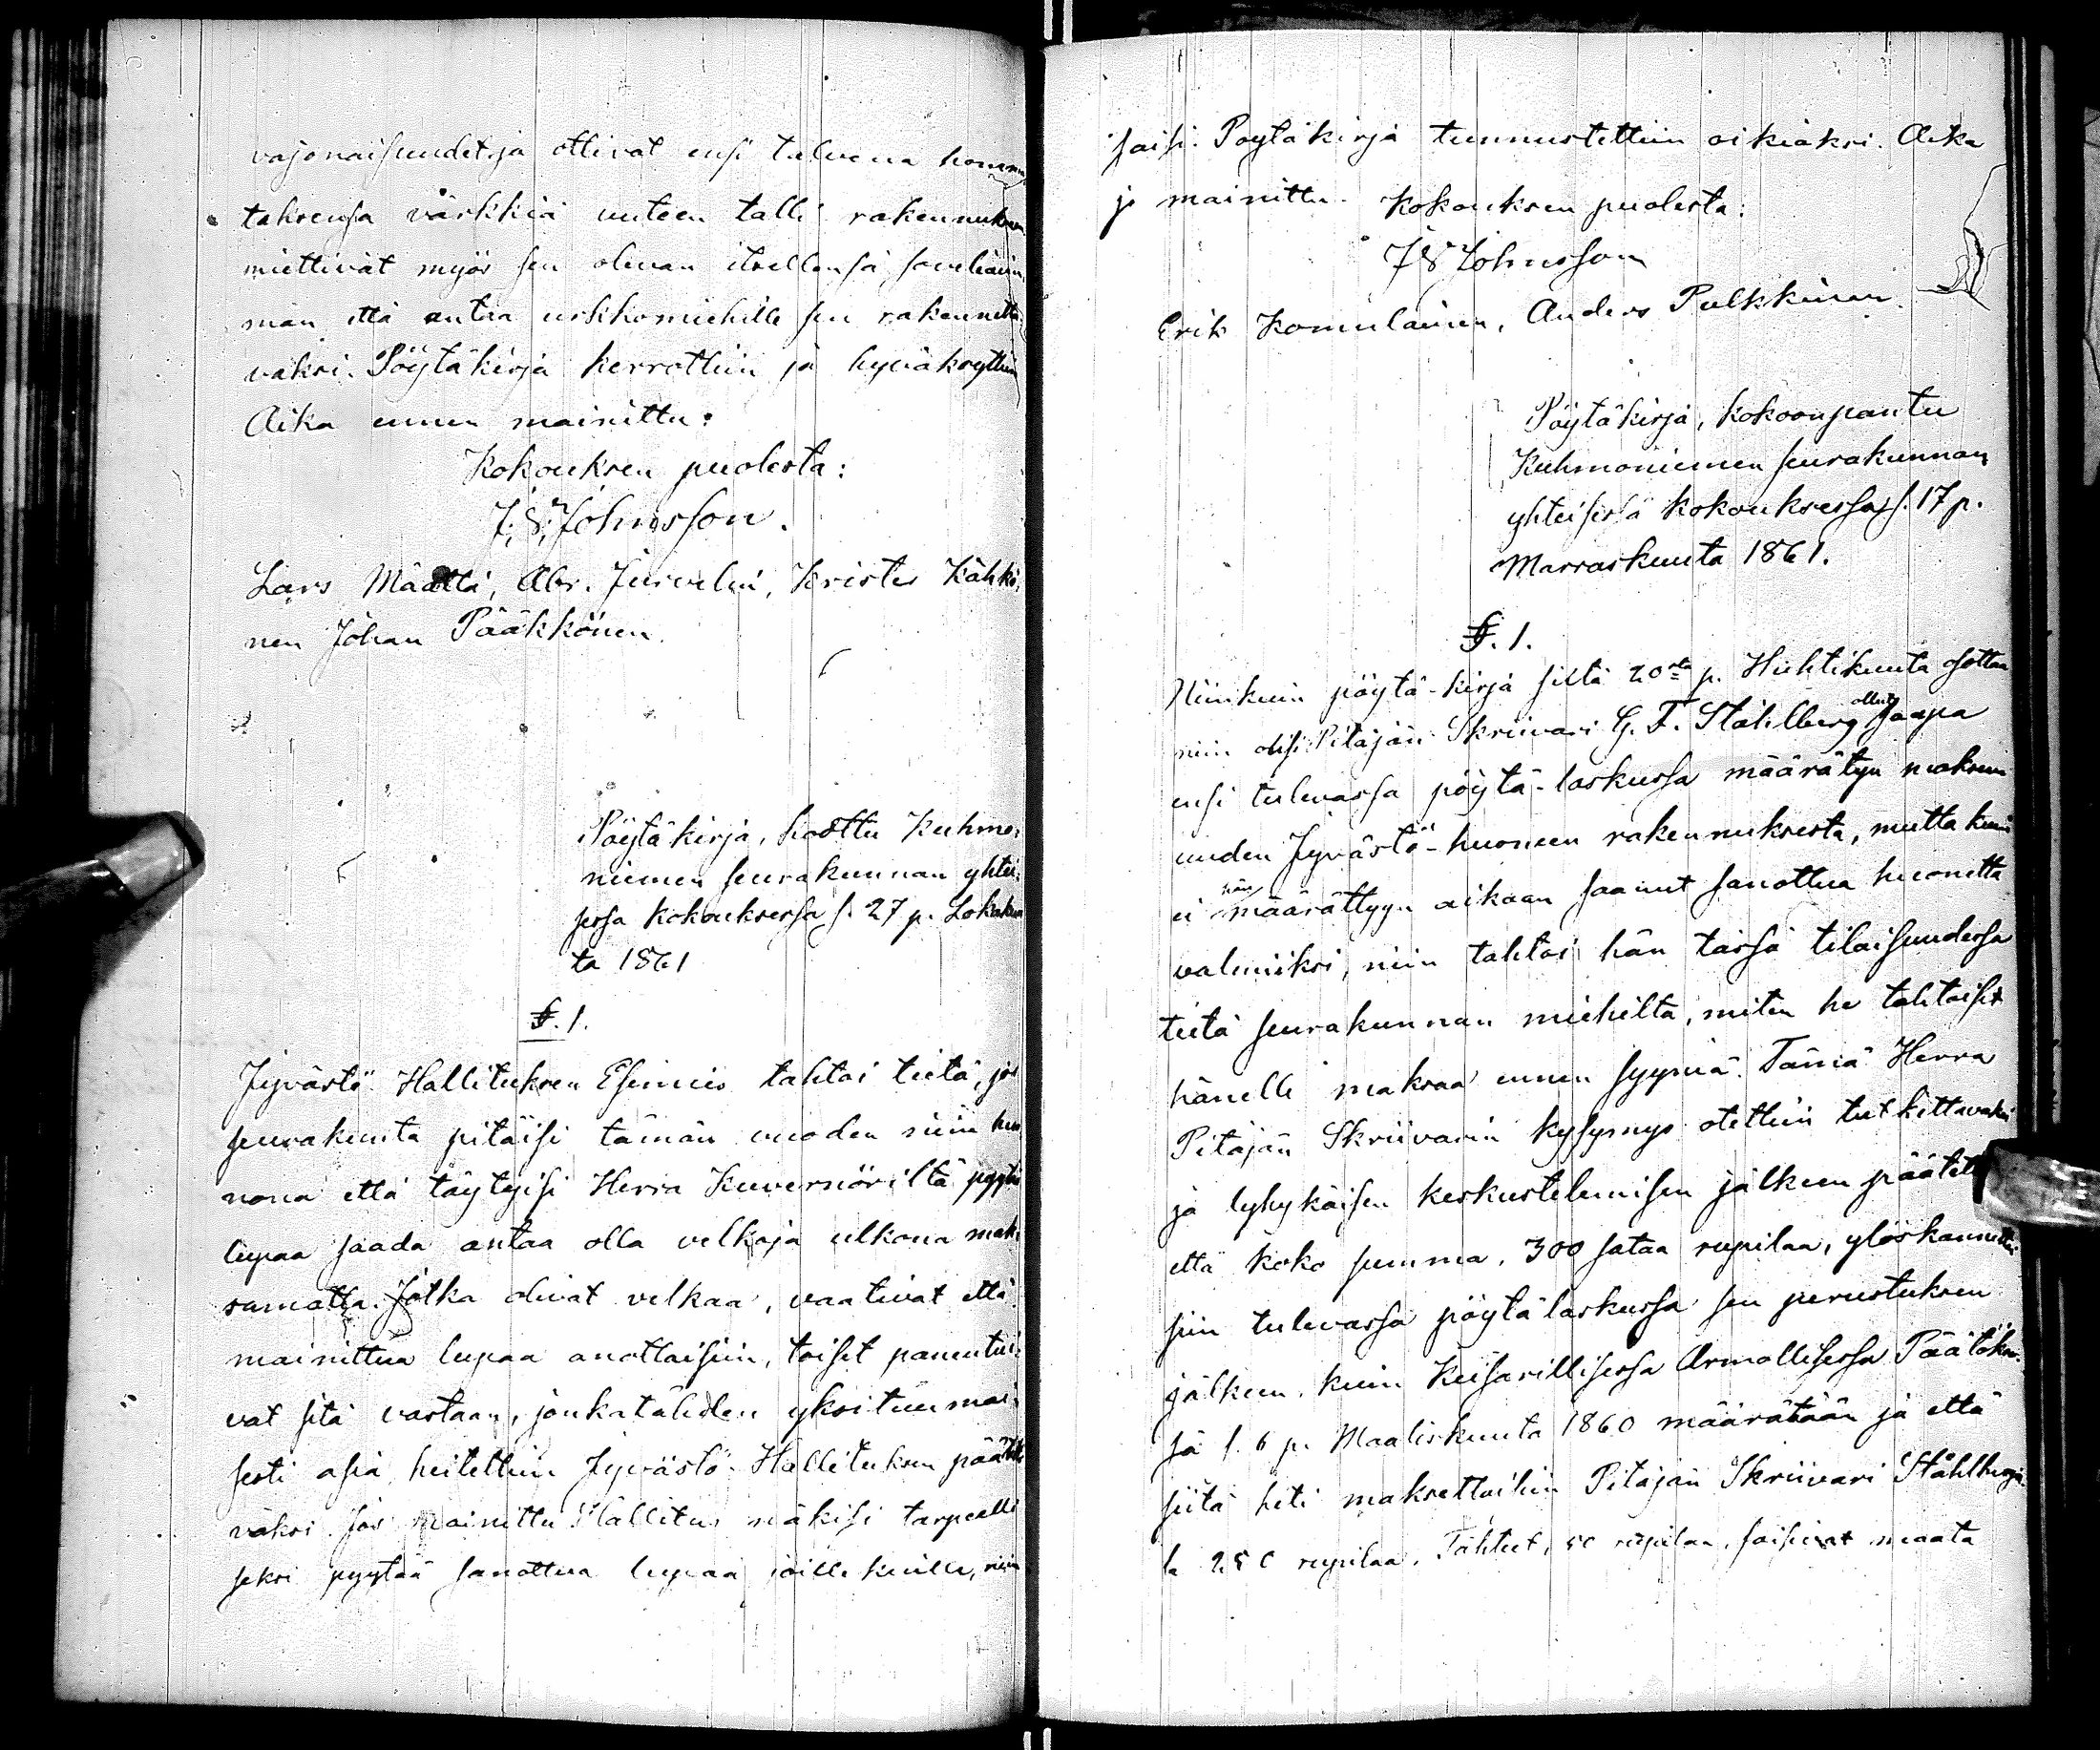 vajonaisuudet, ja ottivat ensi talvena homma,
taksensa värkkiä uuteen talli rakennukseen
miettivät myös sen olevan itsellensä soveliaim,
man että antaa urkkomiehille sen rakennetta,
vaksi. Pöytäkirja kerrottiin ja hyväksyttiin
Aika ennen mainittu:
Kokouksen puolesta:
J. S. Johnsson.
Lars Määttä, Abr. Jurvelin, Krister Kähkö,
nen Johan Pääkkönen.
Pöytäkirja, koottu Kuhmo,
niemen seurakunnan yhtei,
sessa kokouksessa s. 27 p. Lokakuu
ta 1861
§. 1.
Jyvästö Hallituksen Esimies tahtoi tietä, jos
seurakunta pitäisi tämän vuoden niin huo
nona että täytyisi Herra Kuvernöriltä pyytä
lupaa saada antaa olla velkoja ulkona mak,
samatta. Jotka olivat velkaa, vaativat että
mainittua lupaa anottaisiin, toiset panentui,
vat sitä vastaan, jonkatähden yksituumai,
sesti asia heitettiin Jyvästö-Hallituksen päätettä
väksi. Jos mainittu Hallitus näkisi tarpeelli
seksi pyytää sanottua lupaa joillekuille, niin
saisi. Poytäkirja tunnustettiin oikiaksi. Aika
jo mainittu. Kokouksen puolesta:
J S Johnsson
Erik Komulainen, Anders Pulkkinen.
Pöytäkirja, kokoonpantu
Kuhmoniemen seurakunnan
yhteisessä kokouksessa s. 17 p.
Marraskuuta 1861.
§. 1.
Niinkuin pöytä-kirja siltä 20ta p. Huhtikuuta osottaa
niin olisi Pitäjän Skriivari G. F. Ståhlberg ollut saapa
ensi tulevassa pöytä-laskussa määrätyn maksun
uuden Jyvästö-huoneen rakennuksesta, mutta kuin
ei hän määrättyyn aikaan saanut sanottua huonetta
valmiiksi, niin tahtoi hän tässä tilaisuudessa
tietä seurakunnan miehiltä, miten he tahtoisit
hänelle maksaa ennen syyniä. Tämä Herra
Pitäjän Skriivarin kysymys otettiin tutkittavaksi
ja lyhykäisen keskustelemisen jälkeen päätett
että koko summa, 300 sataa rupilaa, ylöskannettai
siin tulevassa pöytälaskussa sen perustuksen
jälkeen, kuin Keisarillisessa Armollisessa Päätökses,
sä s. 6 p. Maaliskuuta 1860 määrätään ja että
siitä heti maksettaisiin Pitäjän Skriivari Ståhlbergi
le 250 rupilaa. Tähteet, 50 rupilaa, saisivat maata